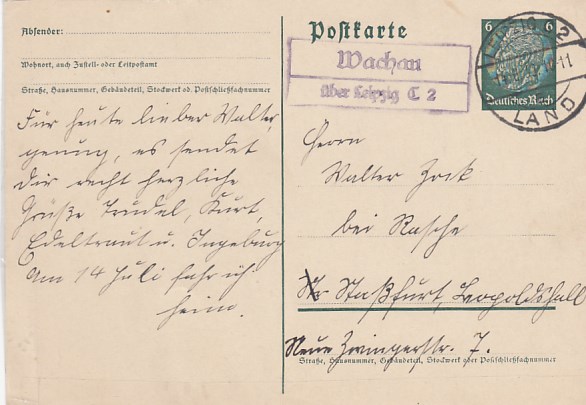 Absender:
Wohnort, auch Zustell- oder Leitpostamt
Straße, Hausnummer, Gebäudeteil, Stockwerk od. Postschließfachnummer
Für heute lieber Walter,
genug, es sendet
dir recht herzliche
Grüße Trudel, Kurt,
Edeltraut u. Ingeburg
Am 14 Juli fahr ich
heim.
Postkarte
Wachau
über Leipzig C 2
6 6
Deutsches Reich
LEIPZIG C 2
LAND
Herrn
Walter Zock
bei Rasche
Staßfurt, Leopoldshall
Neue Zwingerstr. 7.
Straße, Hausnummer, Gebäudeteil, Stockwerk oder Postschließfachnummer